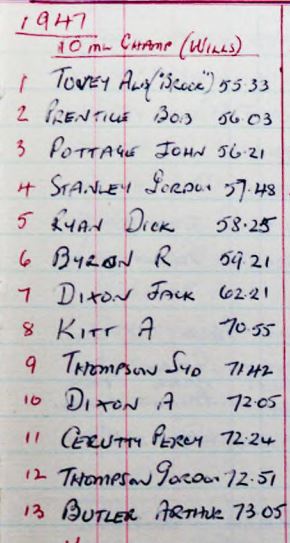 1947
10 ML CHAMP (WILLS)
1 TOVEY ALF ("BROOK") 55.33
2 PRENTICE BOB 56.03
3 POTTAGE JOHN 56.21
4 STANLEY GORDON 57.48
5 RYAN DICK 58.25
6 BYRON R 59.21
7 DIXON JACK 62.21
8 KITT A 70.55
9 THOMPSON SYD 71.42
10 DIXON A 72.05
11 CERUTTY PERCY 72.24
12 THOMPSON GORDON 72.51
13 BUTLER ARTHUR 73.05